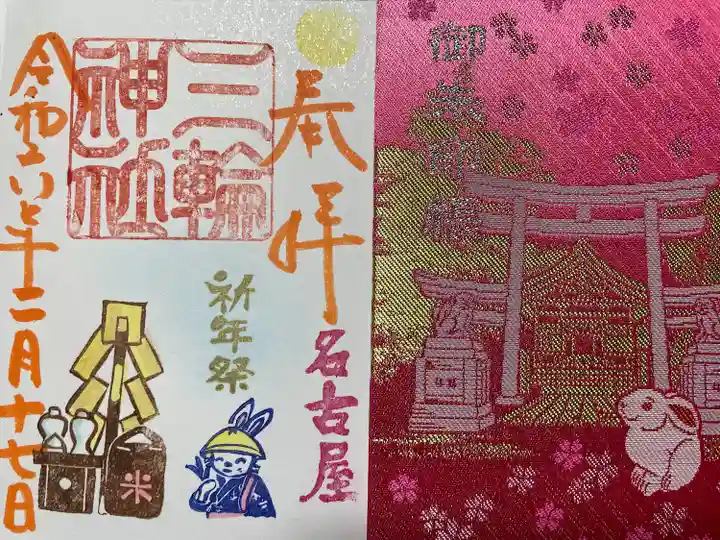 御朱印帳
奉拝
名古屋
三輪
神社
祈年祭
令和 年二月十七日
米